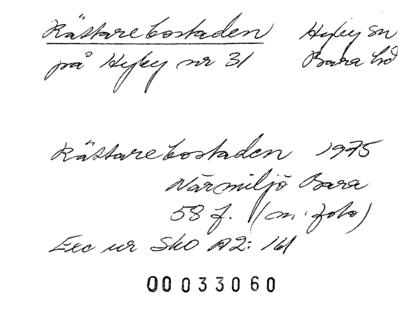 Rättarebostaden Hyby sn
på Hyby nr 31 Bara hd
Rättarebostaden 1975
Närmiljö Bara
58 f. (m. foto)
Exc ur Sko A2: 161
00033060